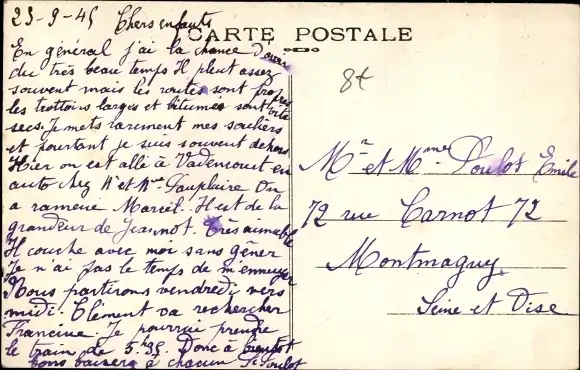 23-9-45 Chers enfants
CARTE POSTALE
En général j'ai la chance d'avoir
du très beau temps Il pleut assez
souvent mais les routes sont propres
les trottoirs larges et bitumés sont vite
secs. Je mets rarement mes souliers
et pourtant je suis souvent dehors
Hier on est allé à Vadencourt en
auto chez Mr et Mme On
a ramené Marcel. Il est de la
grandeur de Jeannot. Très aimable
Il couche avec moi sans gêner
Je n'ai pas le temps de m'ennuyer
Nous partirons vendredi vers
midi. Clément va rechercher
Francine. Je pourrai prendre
le train de 5h35. Donc à bientôt
bons baisers à chacun Poulot
8f
Mr et Mme Poulot Emile
72 rue Carnot 72
Montmagny
Seine et Oise